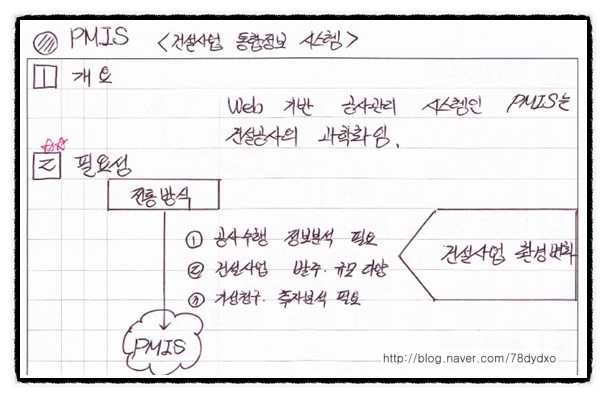 PMIS <건설사업 통합정보 시스템>
1 개요
Web 기반 공사관리 시스템인 PMIS는
건설공사의 과학화임.
☆☆
2 필요성
전통방식
① 공사수행 정보분석 필요
② 건설사업 발주·규모 다양
③ 기성청구·투자분석 필요
건설사업 환경변화
PMIS
http://blog.naver.com/78dydxo